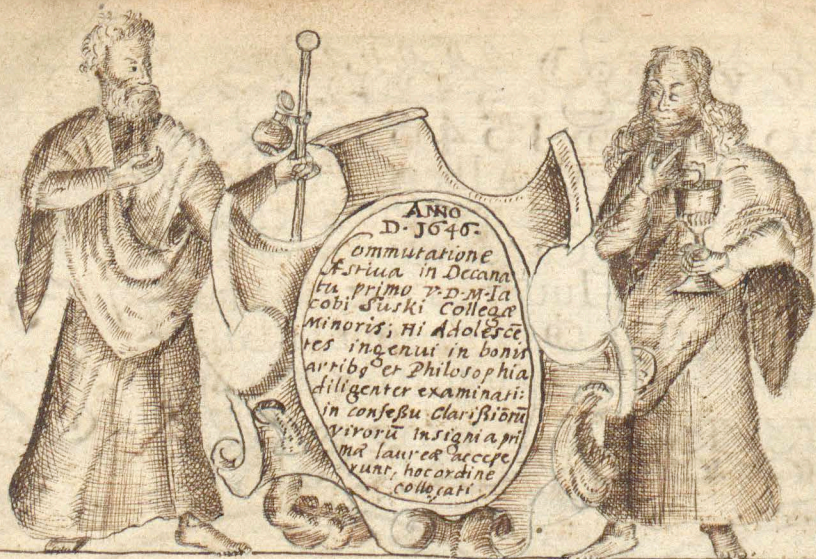 ANNO
D. 1646.
Commutatione
Æstiua in Decana
tu primo V. D. M. Ia
cobi Suski Collegæ
Minoris; Hi Adolescē
tes ingenui in bonis
artibꝫ et Philosophia
diligenter examinati:
in conseßu Clarißiōrū
virorū insignia pri
mæ laureæ accepe
runt, hoc ordine
collocati.